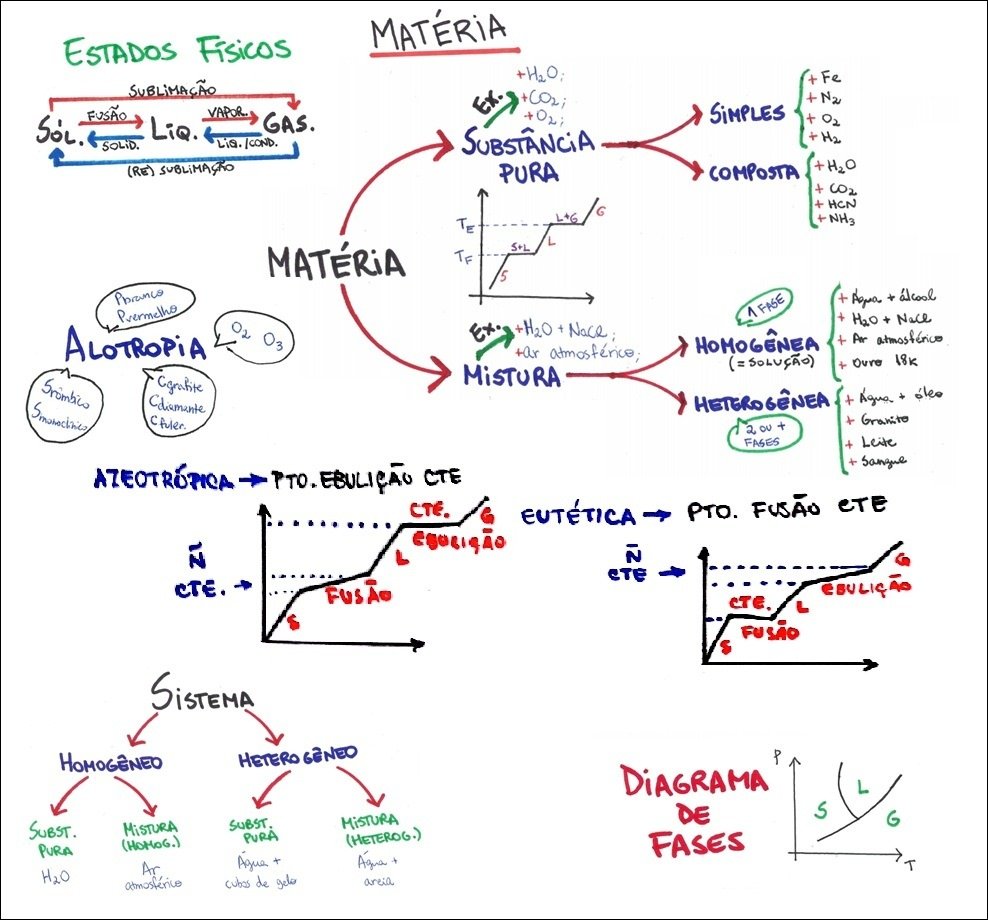 MATÉRIA
ESTADOS FÍSICOS
SUBLIMAÇÃO
SÓL. FUSÃO LIQ. VAPOR. GAS.
SOLID. LIQ./COND.
(RE) SUBLIMAÇÃO
MATÉRIA
Ex.
+H₂O;
+CO₂;
+O₂;
SUBSTÂNCIA
PURA
SIMPLES
+ Fe
+ N₂
+ O₂
+ H₂
COMPOSTA
+ H₂O
+ CO₂
+ HCN
+ NH₃
TE
TF
S
S+L
L
L+G
G
Ex.
+H₂O + NaCl;
+Ar atmosférico;
MISTURA
1 FASE
HOMOGÊNEA
(= SOLUÇÃO)
+ Água + álcool
+ H₂O + NaCl
+ Ar atmosférico
+ Ouro 18K
HETEROGÊNEA
2 ou +
FASES
+ Água + óleo
+ Granito
+ Leite
+ Sangue
Pbranco
Pvermelho
ALOTROPIA
O₂ O₃
Srômbico
Smonoclínico
Cgrafite
Cdiamante
Cfuler.
AZEOTRÓPICA → PTO. EBULIÇÃO CTE
Ñ
CTE. →
S
FUSÃO
L
CTE.
EBULIÇÃO
G
EUTÉTICA → PTO. FUSÃO CTE
Ñ
CTE →
S
CTE.
FUSÃO
L
EBULIÇÃO
G
SISTEMA
HOMOGÊNEO
HETEROGÊNEO
SUBST.
PURA
H₂O
MISTURA
(HOMOG.)
Ar
atmosférico
SUBST.
PURA
Água +
cubos de gelo
MISTURA
(HETEROG.)
Água +
areia
DIAGRAMA
DE
FASES
P
S
L
G
T